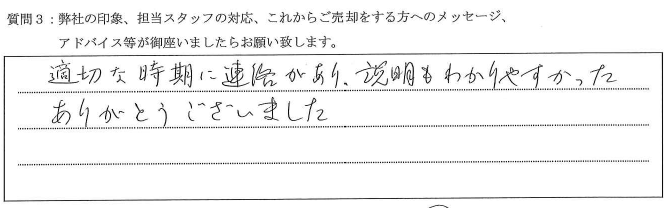 質問3：弊社の印象、担当スタッフの対応、これからご売却をする方へのメッセージ、
アドバイス等が御座いましたらお願い致します。
適切な時期に連絡があり、説明もわかりやすかった
ありがとうございました